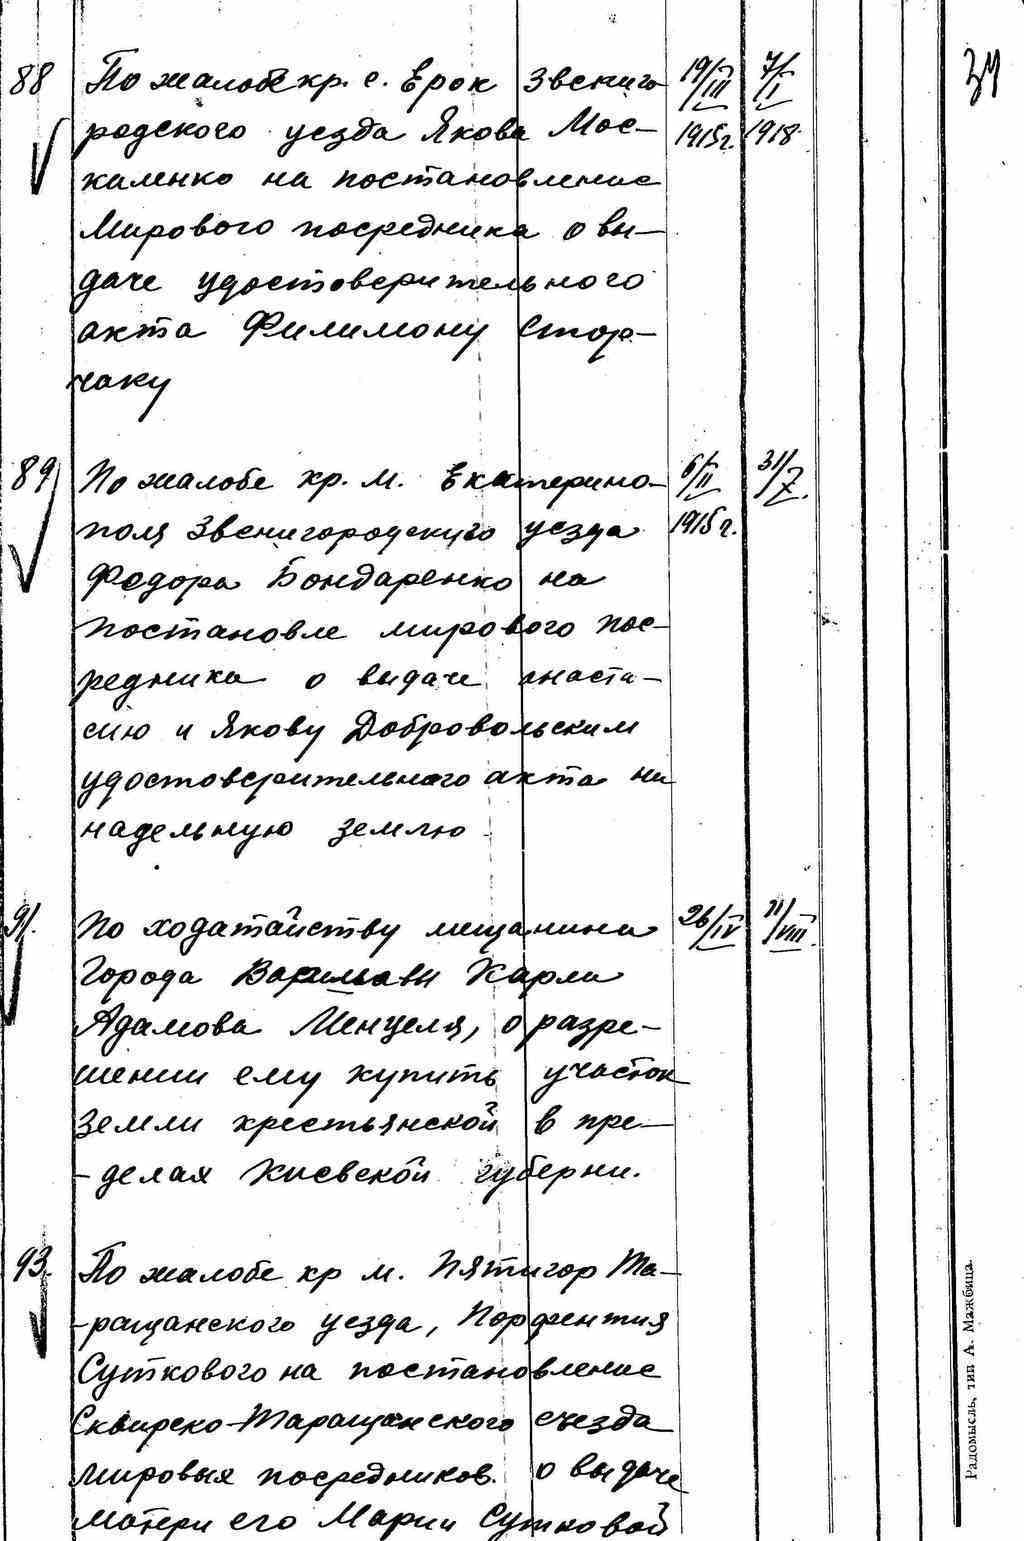 34
88 По жалобе кр. с. Ерок Звениго- 19/III 7/I
родского уезда Якова Мос- 1915г. 1918
каленко на постановление
Мирового посредника о вы-
даче удостоверительного
акта Филимону Стор-
чаку
89 По жалобе кр. м. Екатерино- 6/II 31/X.
поля Звенигородского уезда 1915г.
Федора Бондаренко на
постановле мирового пос-
редника о выдаче Анаста-
сию и Якову Добровольским
удостоверительного акта на
надельную землю
91. По ходатайству мещанина 26/IV 11/VIII.
Города Варшавы Карла
Адамова Менцеля, о разре-
шении ему купить участок
земли крестьянской в пре-
-делах Киевской губерни.
93. По жалобе кр м. Пятигор Та-
-ращанского уезда, Порфентия
Суткового на постановление
Сквирско-Таращанского съезда
мировых посредников о выдаче
матери его Марии Сутковой
Радомысль, тип А. Мажбица.